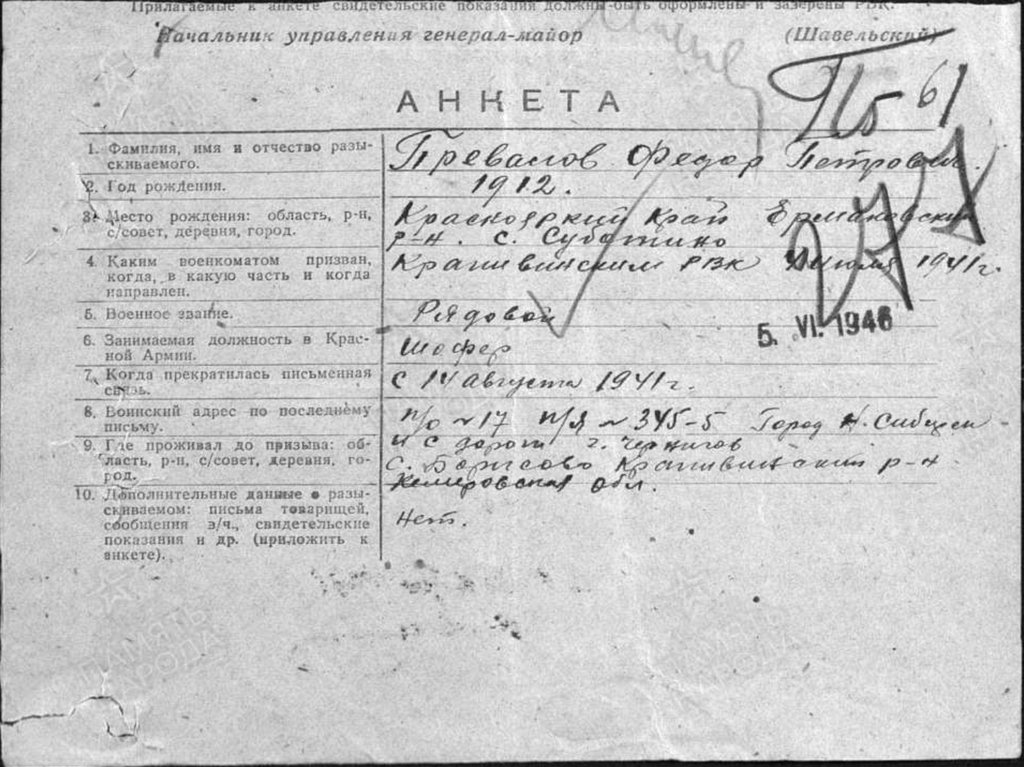 Прилагаемые к анкете свидетельские показания должны быть оформлены и заверены РВК.
Начальник управления генерал-майор (Шавельский)
Пб 61
АНКЕТА
1. Фамилия, имя и отчество разы-
скиваемого.
Превалов Федор Петрович.
2. Год рождения.
1912.
3. Место рождения: область, р-н,
с/совет, деревня, город.
Краснояркий Край Ермаковский
р-н. с. Субатино
4. Каким военкоматом призван,
когда, в какую часть и когда
направлен.
Крапивинским РВК июля 1941г.
5. Военное звание.
Рядовой
5. VI. 1946
6. Занимаемая должность в Крас-
ной Армии.
Шофер
7. Когда прекратилась письменная
связь.
С 14 августа 1941г.
8. Воинский адрес по последнему
письму.
п/о ~17 п/я ~345-5 Город Н. Сибирск
и с дороги г. Чернигов
9. Где проживал до призыва: об-
ласть, р-н, с/совет, деревня, го-
род.
с. Борисово Крапивинский р-н
Кемеровская обл.
10. Дополнительные данные о разы-
скиваемом: письма товарищей,
сообщения в/ч., свидетельские
показания и др. (приложить к
анкете).
Нет.
ПАМЯТЬ
НАРОДА
ПАМЯТЬ
НАРОДА